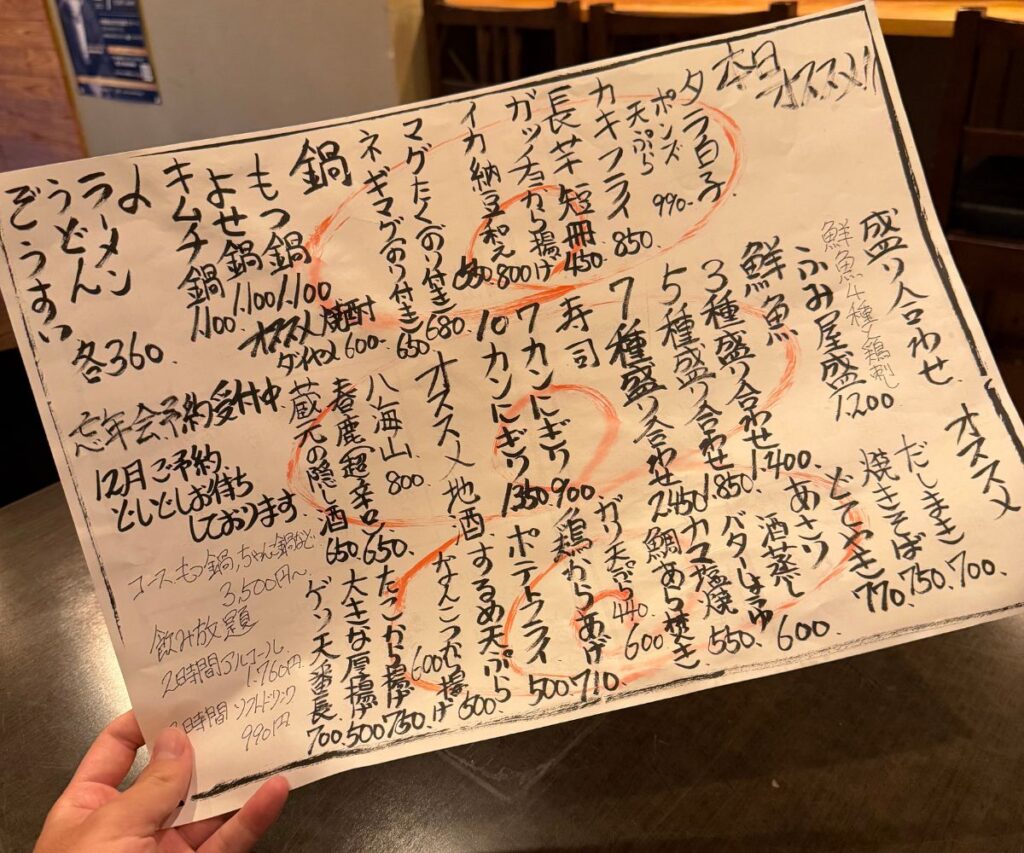 本日オススメ
タラ白子
ポンズ
天ぷら 990-
カキフライ 850.
長芋短冊 450.
ガッチョから揚げ 800
イカ納豆和え
マグたく(のり付き) 680.
ネギマグ(のり付き) 650
鍋
もつ鍋 1.100
よせ鍋 1.100
キムチ鍋 1.100.
〆
ラーメン
うどん
ぞうすい
各360.
盛り合わせ
鮮魚4種と鶏刺し
ふみ屋盛 1200
鮮魚
3種盛り合わせ 1.400.
5種盛り合わせ 1.850.
7種盛り合わせ 2.450
寿司
7カンにぎり 900.
10カンにぎり 1350
オススメ焼酎
ダイヤメ 600-
オススメ地酒
八海山 800
春鹿(超辛口) 650.
蔵元の隠し酒 650.
忘年会予約受付中
12月ご予約
どしどしお待ち
しております
オススメ
だしまき 700.
焼きそば 750.
どてやき 770.
あさり
酒蒸し
バターしょうゆ 600
カマ塩焼 550.
鯛あら焚き 600
ガリ天ぷら 440.
鶏からあげ 710.
ポテトフライ 500.
するめ天ぷら 600
なんこつから揚げ 600
たこから揚げ 750.
大きな厚揚げ 500
ゲソ天一番長 700.
コースもつ鍋、ちゃんこ鍋など
3,500円〜
飲み放題
2時間アルコール
1.760円
2時間ソフトドリンク
990円